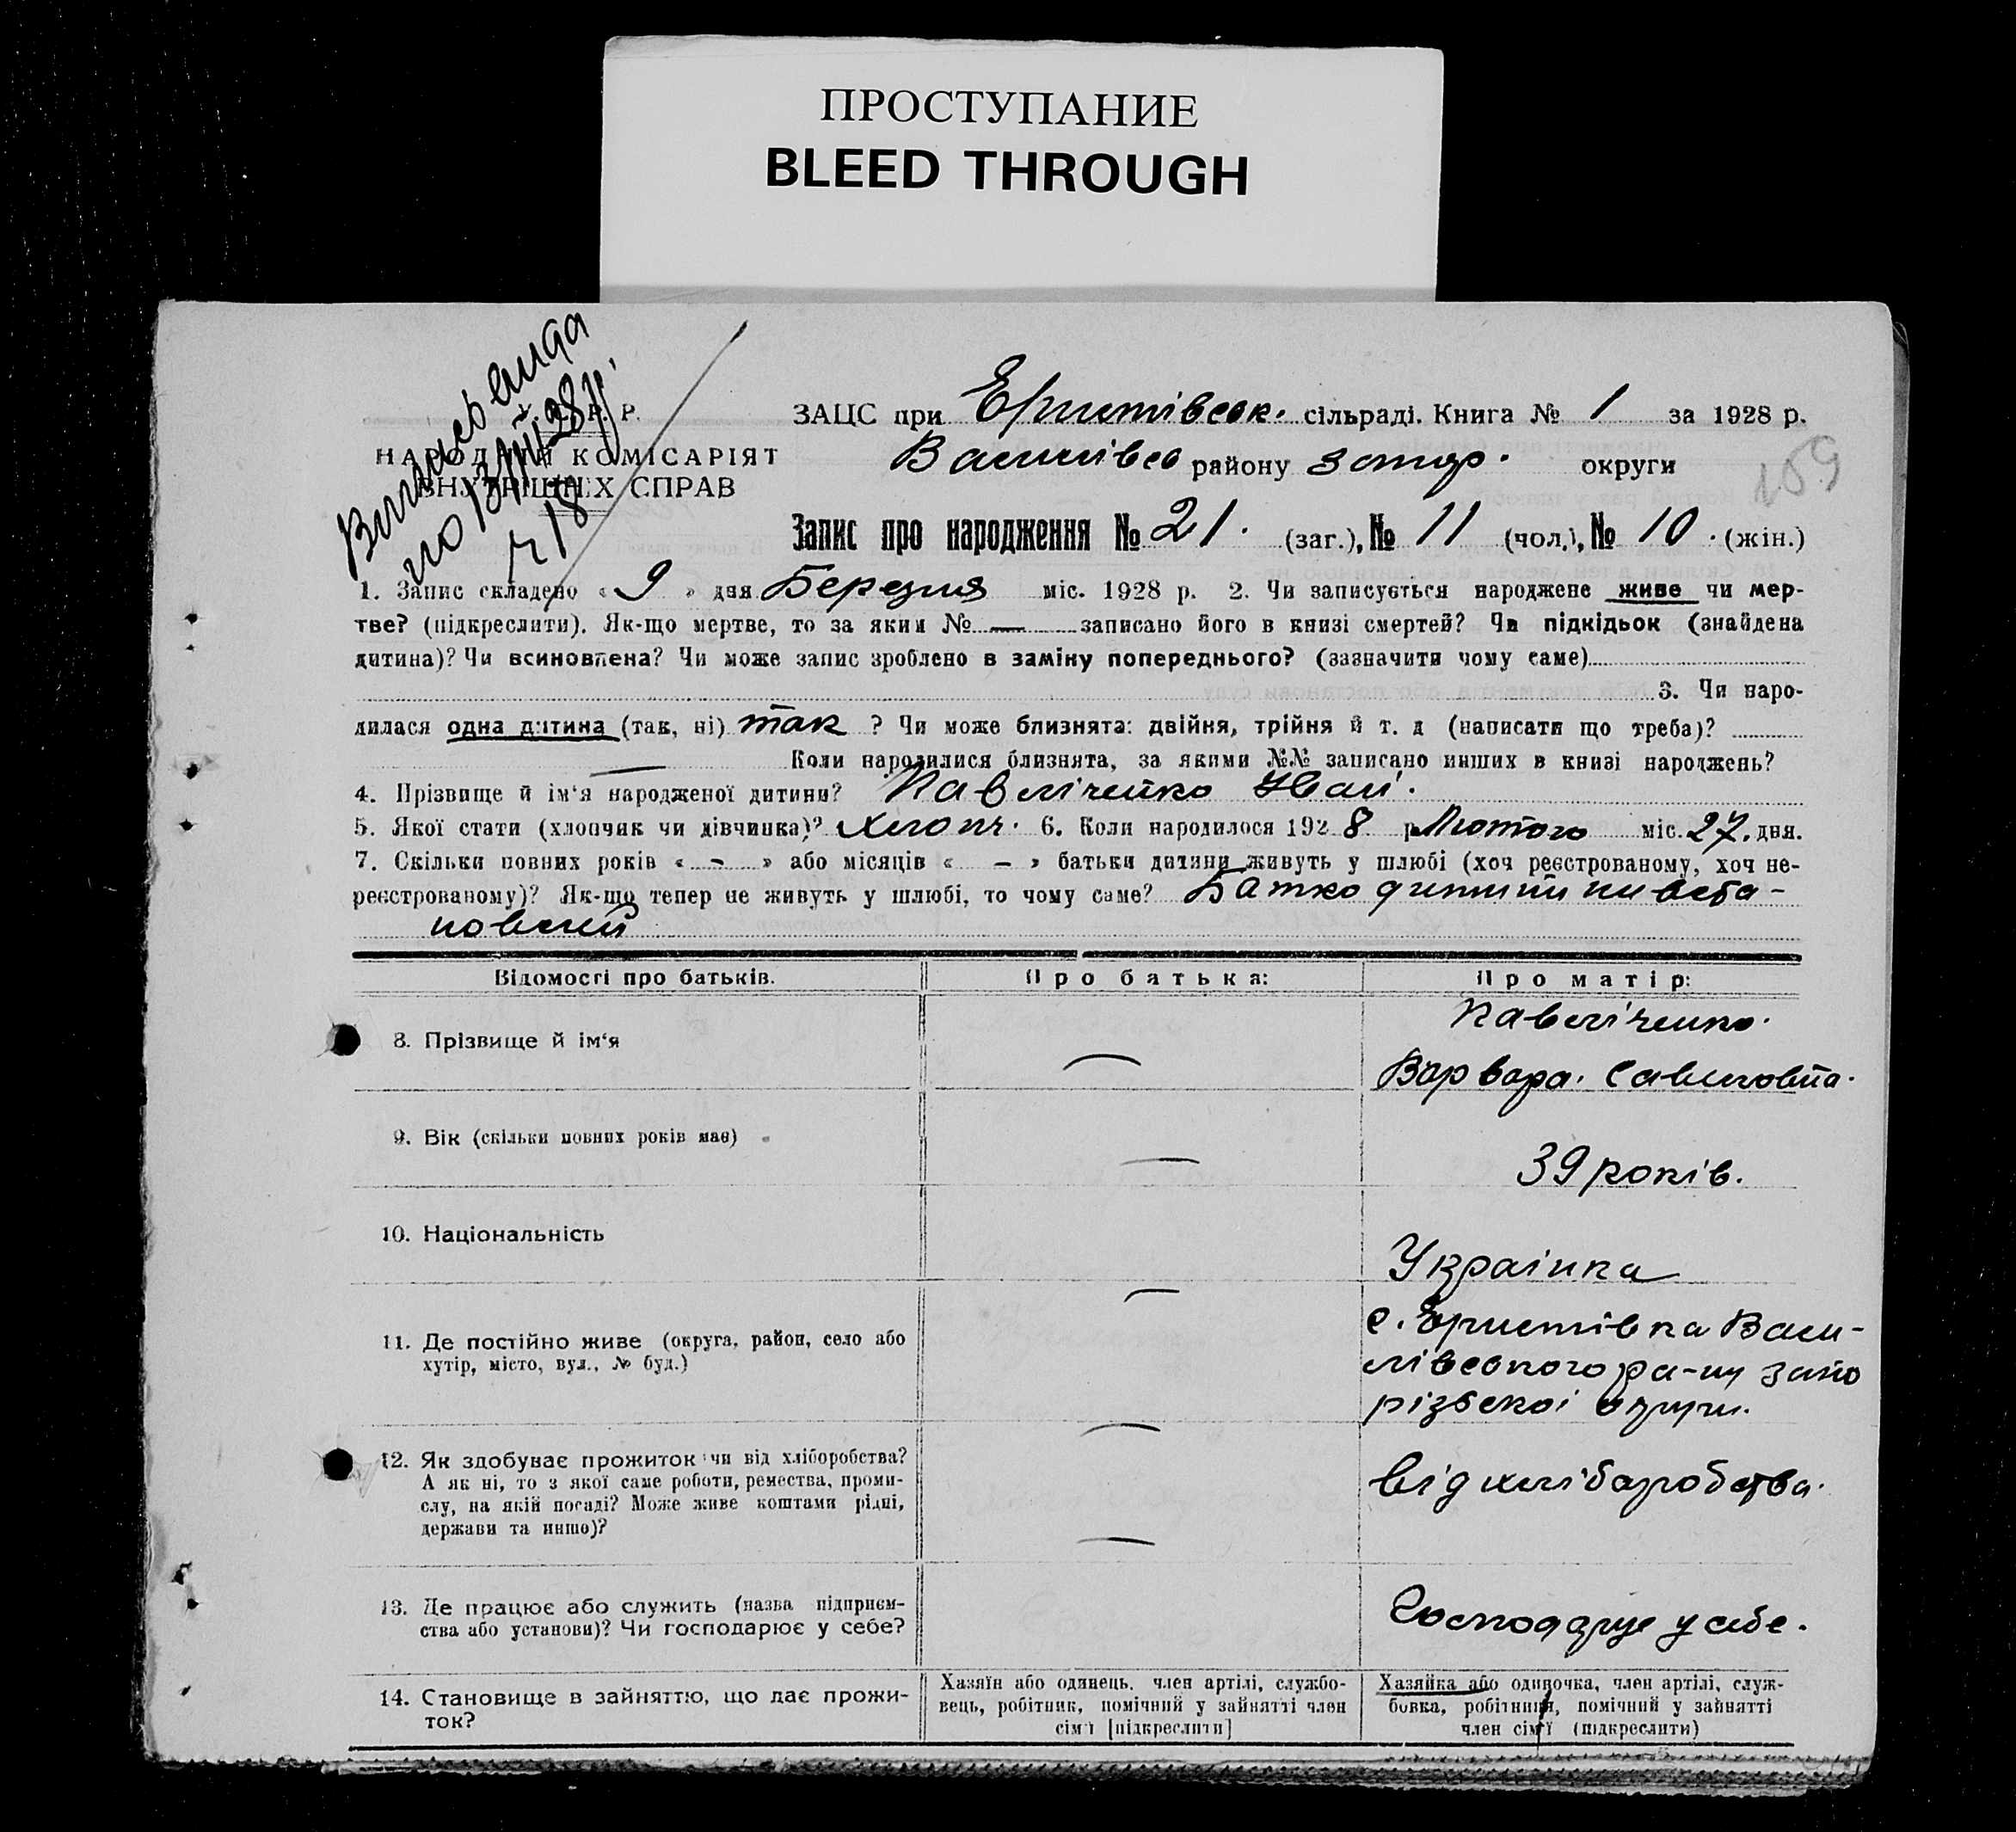 ПРОСТУПАНИЕ
BLEED THROUGH
ЗАЦС при Еристівськ. сільраді. Книга № 1 за 1928 р.
НАРОДНИЙ КОМІСАРІЯТ
ВНУТРІШНІХ СПРАВ
Василівсь району запор. округи
159
Запис про народження № 21. (заг.), № 11 (чол.), № 10. (жін.)
1. Запис складено « 9 » дня Березня міс. 1928 р. 2. Чи записується народжене живе чи мер-
тве? (підкреслити). Як-що мертве, то за яким № — записано його в книзі смертей? Чи підкідьок (знайдена
дитина)? Чи всиновлена? Чи може запис зроблено в заміну попереднього? (зазначити чому саме)
3. Чи наро-
дилася одна дитина (так, ні) так ? Чи може близнята: двійня, трійня й т. д (написати що треба)?
— Коли народилися близнята, за якими №№ записано инших в книзі народжень?
4. Прізвище й ім'я народженої дитини? Павліченко Іван.
5. Якої стати (хлопчик чи дівчинка)? Хлопч. 6. Коли народилося 1928 р. Лютого міс. 27. дня.
7. Скільки повних років « - » або місяців « - » батьки дитини живуть у шлюбі (хоч реєстрованому, хоч не-
реєстрованому)? Як-що тепер не живуть у шлюбі, то чому саме? Батько дитини ни вста-
новлений
Відомості про батьків. Про батька: Про матір:
8. Прізвище й ім'я — Павліченко.
Варвара. Савиловна.
9. Вік (скільки повних років має) — 39 років.
10. Національність — Українка
11. Де постійно живе (округа, район, село або
хутір, місто, вул., № буд.)
— с. Еристівка Васи-
лівського ра-ну Запо
різької округи.
12. Як здобуває прожиток чи від хліборобства?
А як ні, то з якої саме роботи, ремества, проми-
слу, на якій посаді? Може живе коштами рідні,
держави та инше)?
— від хліборобства.
13. Де працює або служить (назва підприєм-
ства або установи)? Чи господарює у себе?
— Господарує у себе.
14. Становище в зайняттю, що дає прожи-
ток?
Хазяїн або одинець, член артілі, службо-
вець, робітник, помічний у зайнятті член
сім'ї [підкреслити]
Хазяйка або одиночка, член артілі, служ-
бовка, робітниця, помічний у зайнятті
член сім'ї (підкреслити)